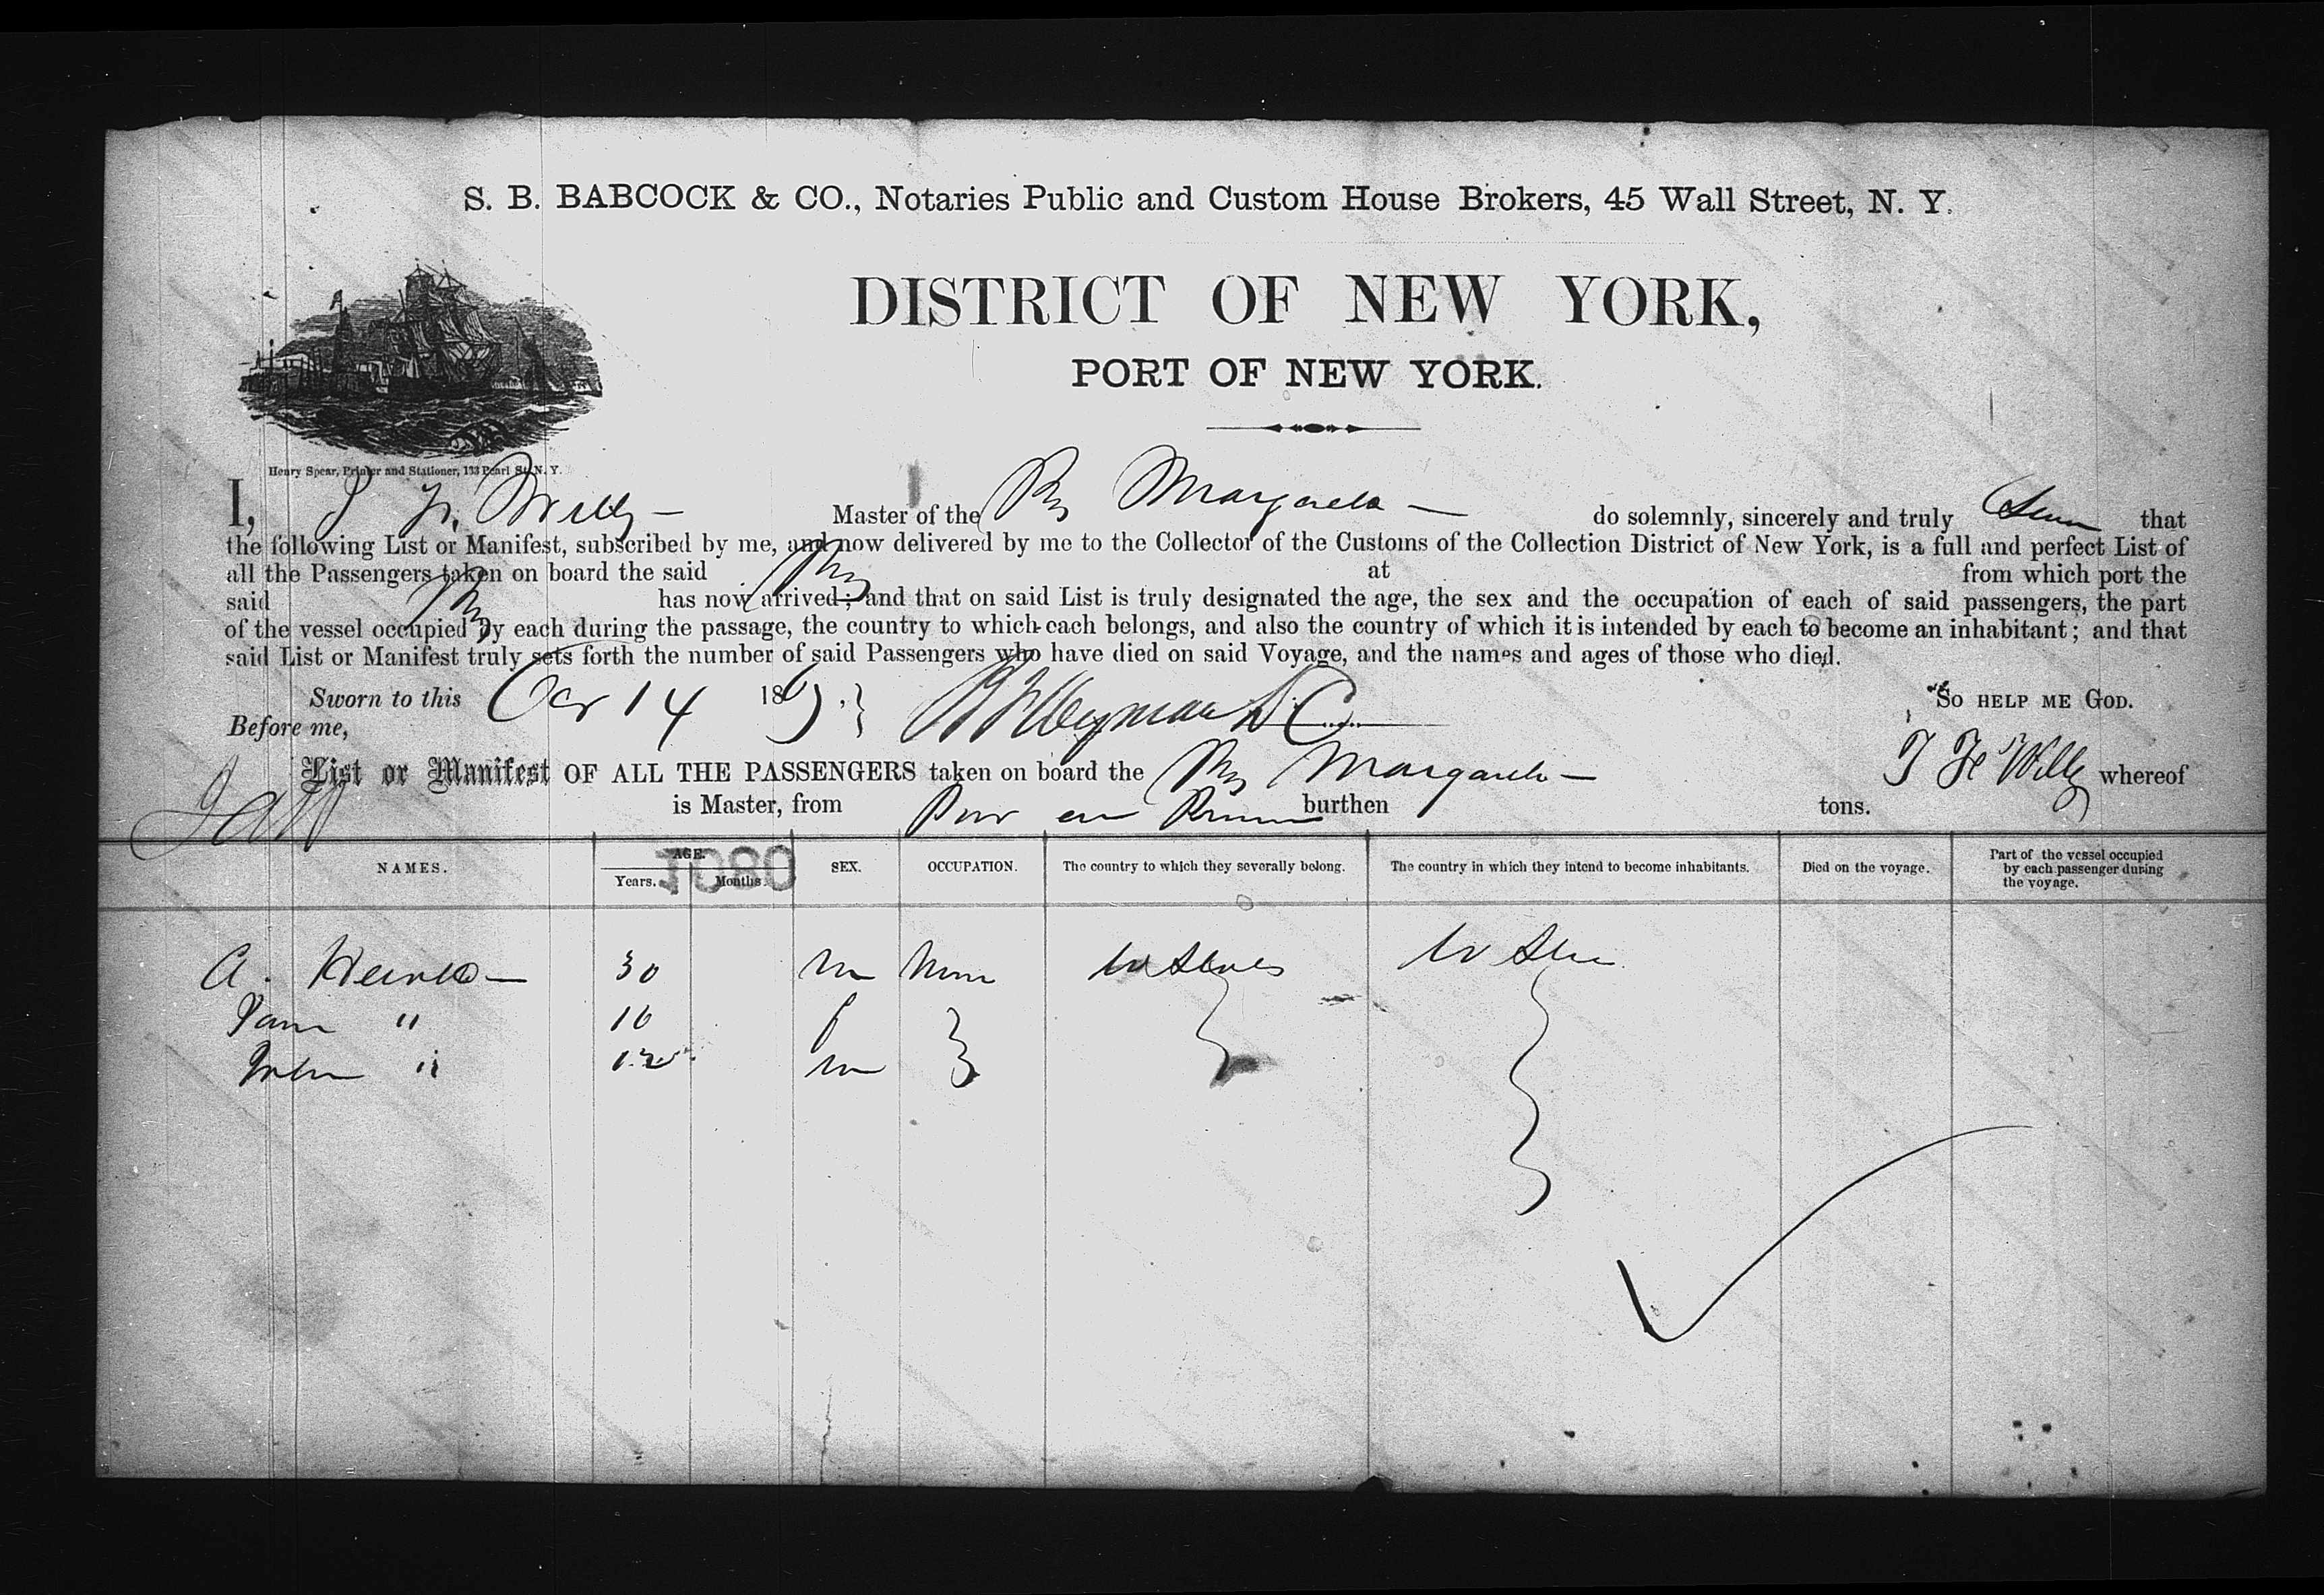 S. B. BABCOCK & CO., Notaries Public and Custom House Brokers, 45 Wall Street, N. Y.
DISTRICT OF NEW YORK,
PORT OF NEW YORK.
Henry Spear, Printer and Stationer, 133 Pearl St. N. Y.
I, Master of the Margaret do solemnly, sincerely and truly that
the following List or Manifest, subscribed by me, and now delivered by me to the Collector of the Customs of the Collection District of New York, is a full and perfect List of
all the Passengers taken on board the said at from which port the
said has now arrived; and that on said List is truly designated the age, the sex and the occupation of each of said passengers, the part
of the vessel occupied by each during the passage, the country to which each belongs, and also the country of which it is intended by each to become an inhabitant; and that
said List or Manifest truly sets forth the number of said Passengers who have died on said Voyage, and the names and ages of those who died.
Sworn to this Oct 14 18 So HELP ME GOD.
Before me,
List or Manifest OF ALL THE PASSENGERS taken on board the Margaret whereof
is Master, from burthen tons.
1080
NAMES. AGE. SEX. OCCUPATION. The country to which they severally belong. The country in which they intend to become inhabitants. Died on the voyage. Part of the vessel occupied by each passenger during the voyage.
Years. Months.
A. 30 m None
" 10 f
" 12 m